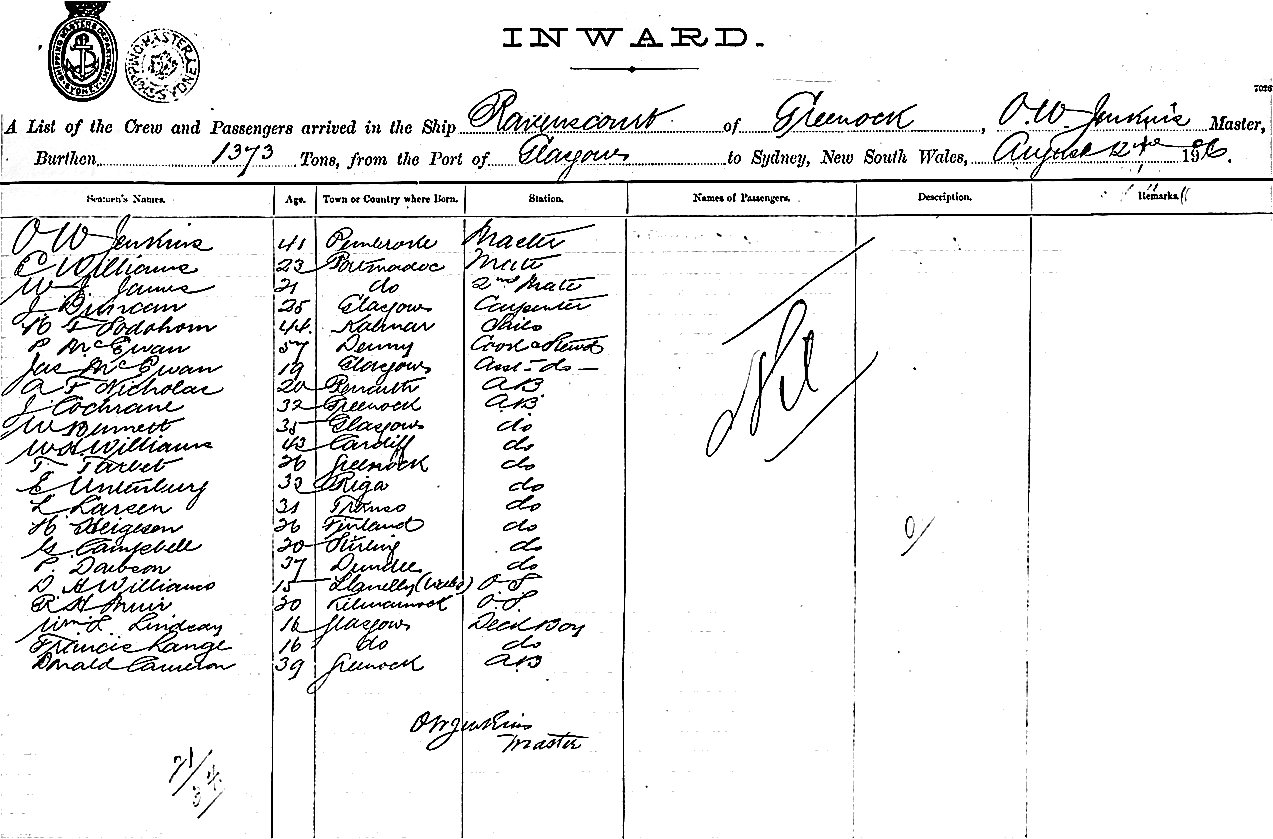 INWARD.
SHIPPING MASTER'S DEPARTMENT SYDNEY
SHIPPING MASTER SYDNEY
7026
A List of the Crew and Passengers arrived in the Ship Ravenscourt of Greenock, O. W Jenkins Master,
Burthen 1373 Tons, from the Port of Glasgow to Sydney, New South Wales, August 12th
Seamen's Names. Age. Town or Country where Born. Station. Names of Passengers. Description. Remarks
O W Jenkins 41 Pembroke Master
E Williams 23 Portmadoc Mate
W J James 21 do 2nd Mate
J Duncan 25 Glasgow Carpenter
44 Kalmar Sails
P McEwan 57 Denny Cook & Stewd
Jas McEwan 19 Glasgow Asst - do -
A F Nicholas 20 Penarth AB
J Cochrane 32 Greenock AB
W Bennett 35 Glasgow do
W H Williams 43 Cardiff do
T. Tarbet 26 Greenock do
E Unterburg 32 Riga do
L Larsen 31 do
H Helgesen 26 Finland do
G Campbell 20 Stirling do
P. Dawson 37 Dundee do
D H Williams 15 Llanelly (Wales) O.S
R H Muir 20 Kilmarnock O.S.
Wm L. Lindsay 16 Glasgow Deck Boy
Francis Lange 16 do do
Donald Cameron 39 Greenock AB
Nil
O W Jenkins
Master
21/